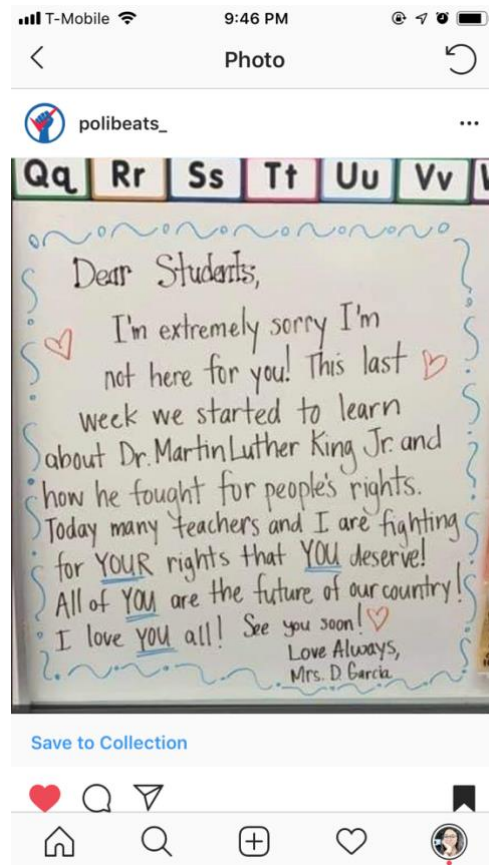 T-Mobile 9:46 PM
Photo
polibeats_
Qq Rr Ss Tt Uu Vv
Dear Students,
I'm extremely sorry I'm
not here for you! This last
week we started to learn
about Dr. Martin Luther King Jr. and
how he fought for people's rights.
Today many teachers and I are fighting
for YOUR rights that YOU deserve!
All of YOU are the future of our country!
I love you all! See you soon!
Love Always,
Mrs. D. Garcia
Save to Collection